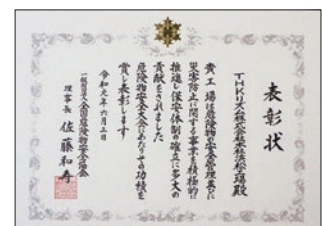 表彰状
THKリズム株式会社浜松工場殿
貴工場は危険物の安全管理並びに
災害防止に関する事業を積極的に
推進し保安体制の確立に多大の
貢献をされました
危険物安全大会にあたりその功績を
賞し表彰します
令和元年六月三日
一般財団法人全国危険物安全協会
理事長 佐藤和寿